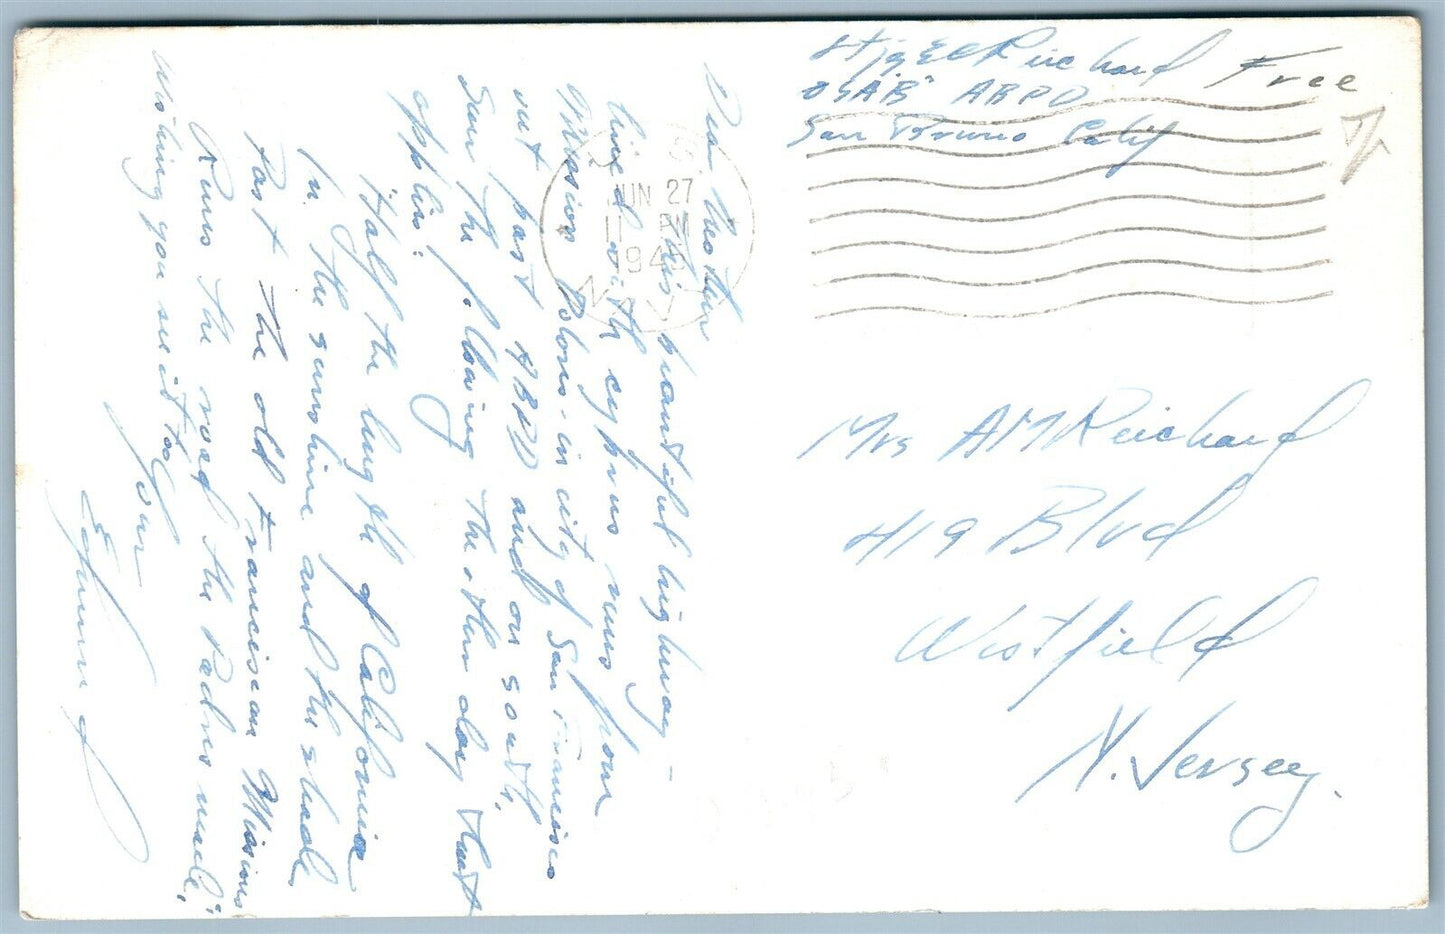 Dear Mother
This beautiful highway -
lined with cyprus runs from
Mission Dolores - in city of San Francisco
out past ABPD and on south.
Saw the following the other day that
applies:
"Half the length of California
In the sunshine and the shade
Past the old Franciscan Missions
Runs the road the Padres made."
Wishing you see it too
Your
Edmund
EC Reichard
USABPD
San Bruno Calif
Free
JUN 27
11 PM
1945
NAVY
Mrs AM Reichard
419 Blvd
Westfield
N. Jersey.